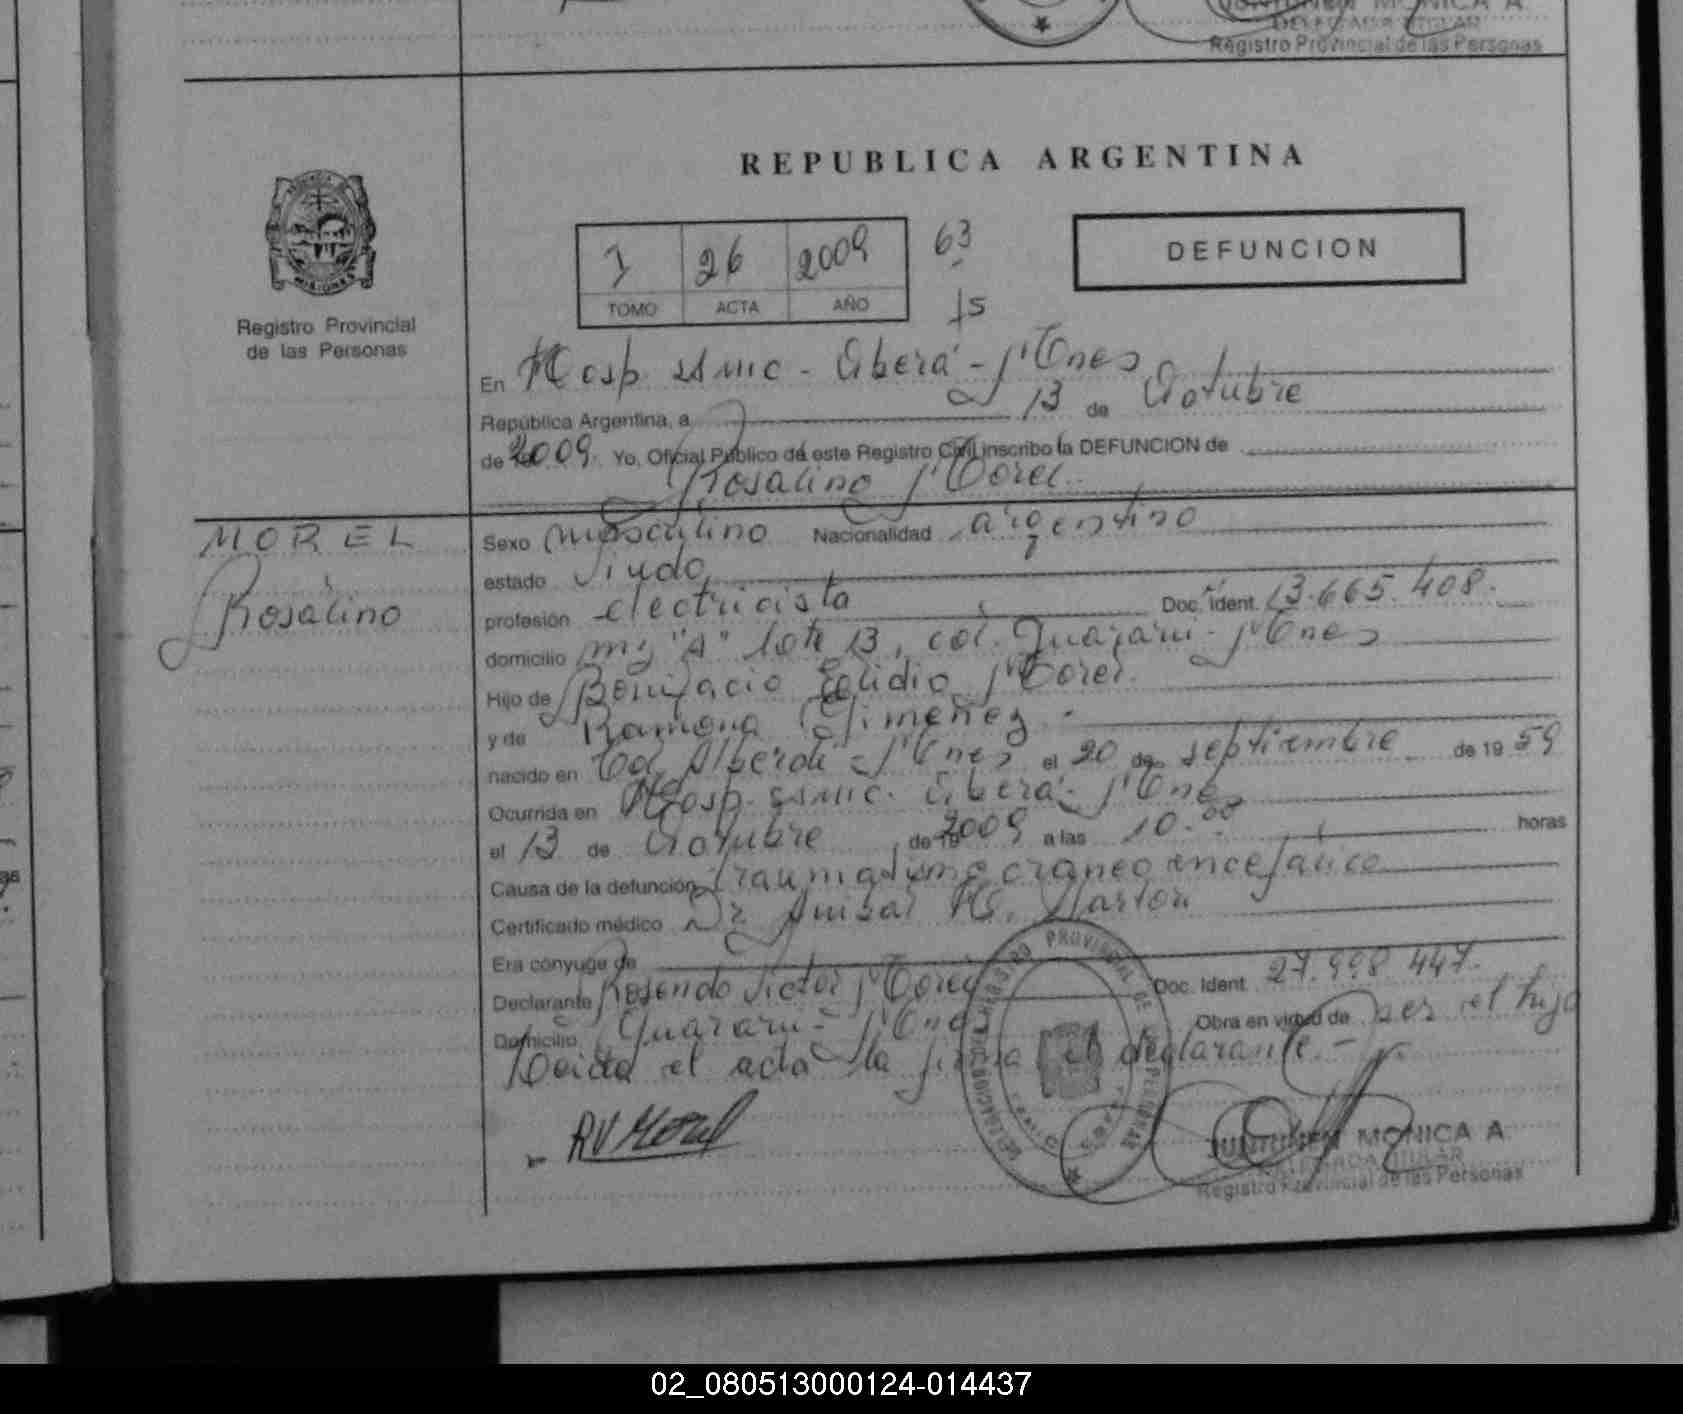 JUNTUNEN MONICA A.
DELEGADA TITULAR
Registro Provincial de las Personas
REPUBLICA ARGENTINA
1 26 2009 63
TOMO ACTA AÑO 15
DEFUNCION
Registro Provincial
de las Personas
En Hosp. SAMIC - Oberá - Mnes
República Argentina, a 13 de Octubre
de 2009 Yo, Oficial Público de este Registro Civil inscribo la DEFUNCION de
Rosalino Morel
MOREL
Rosalino
Sexo masculino Nacionalidad argentino
estado Viudo
profesión electricista Doc. Ident. 13.665.408.
domicilio mz "A" lote 13, col. Guaraní - Mnes
Hijo de Bonifacio Egidio Morel.
y de Ramona Gimenez -
nacido en Col. Alberdi - Mnes el 20 de septiembre de 19 59
Ocurrida en Hosp. SAMIC. Oberá - Mnes
el 13 de Octubre de 2009 a las 10.00 horas
Causa de la defunción Traumatismo craneo encefalico
Certificado médico Dr. Anibal
Era cónyuge de
Declarante Rosendo Victor Morel Doc. Ident. 27.998.447.
Domicilio Guaraní - Mnes Obra en virtud de ser el hijo
Leida el acta la firma el declarante. -
RV Morel
REGISTRO PROVINCIAL DE LAS PERSONAS
JUNTUNEN MONICA A.
DELEGADA TITULAR
Registro Provincial de las Personas
02_080513000124-014437